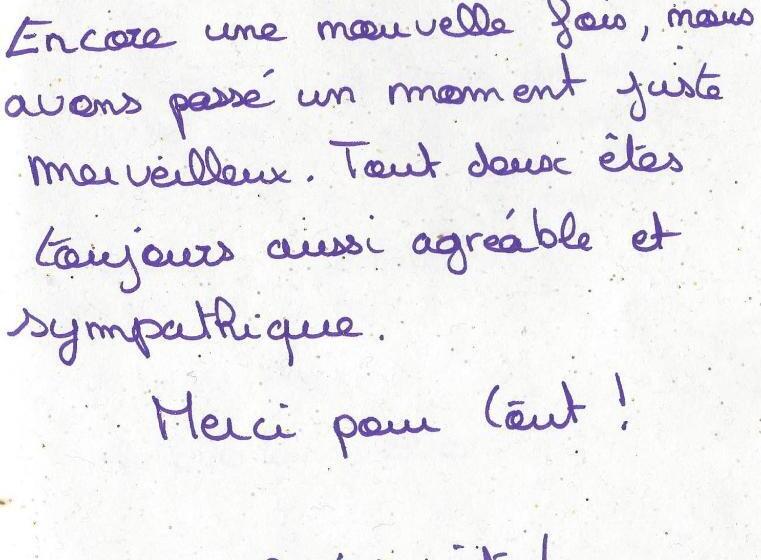 Encore une nouvelle fois, nous
avons passé un moment juste
merveilleux. Tout deux êtes
toujours aussi agréable et
sympathique.
Merci pour tout !